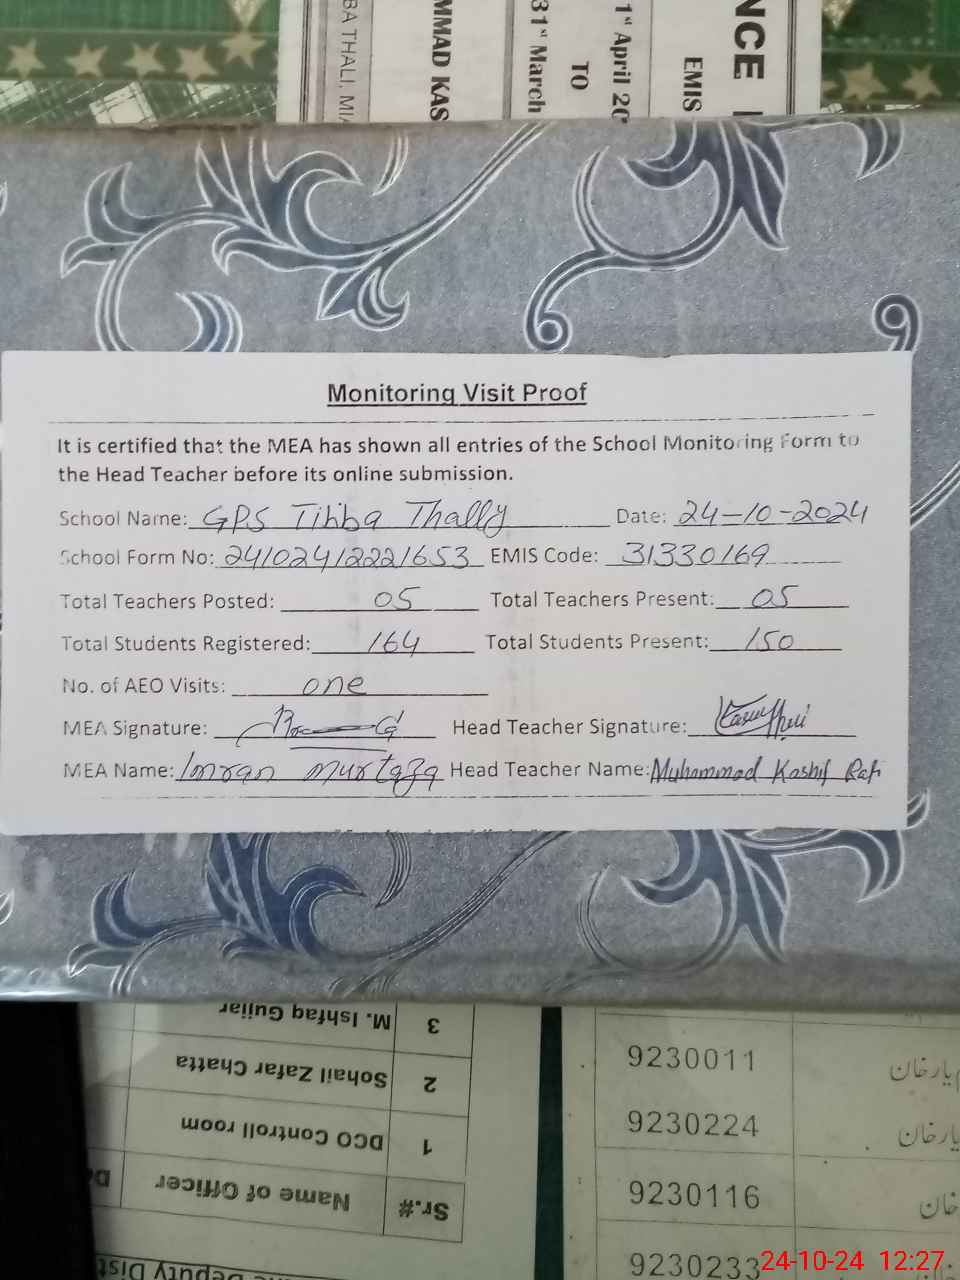 BA THALI, MIA
MMAD KAS
31st March
TO
1st April 20
EMIS
NCE
Monitoring Visit Proof
It is certified that the MEA has shown all entries of the School Monitoring Form to
the Head Teacher before its online submission.
School Name: GPS Tibba Thally Date: 24-10-2024
School Form No: 24102412221653 EMIS Code: 31330169
Total Teachers Posted: 05 Total Teachers Present: 05
Total Students Registered: 164 Total Students Present: 150
No. of AEO Visits: one
MEA Signature: Head Teacher Signature:
MEA Name: Imran Murtaza Head Teacher Name: Muhammad Kashif Rafi
3 M. Ishfaq Gujjar
2 Sohail Zafar Chatta
1 DCO Controll room
Sr.# Name of Officer
Deputy Dist
9230011 یارخان
9230224 یارخان
9230116 خان
9230233
24-10-24 12:27